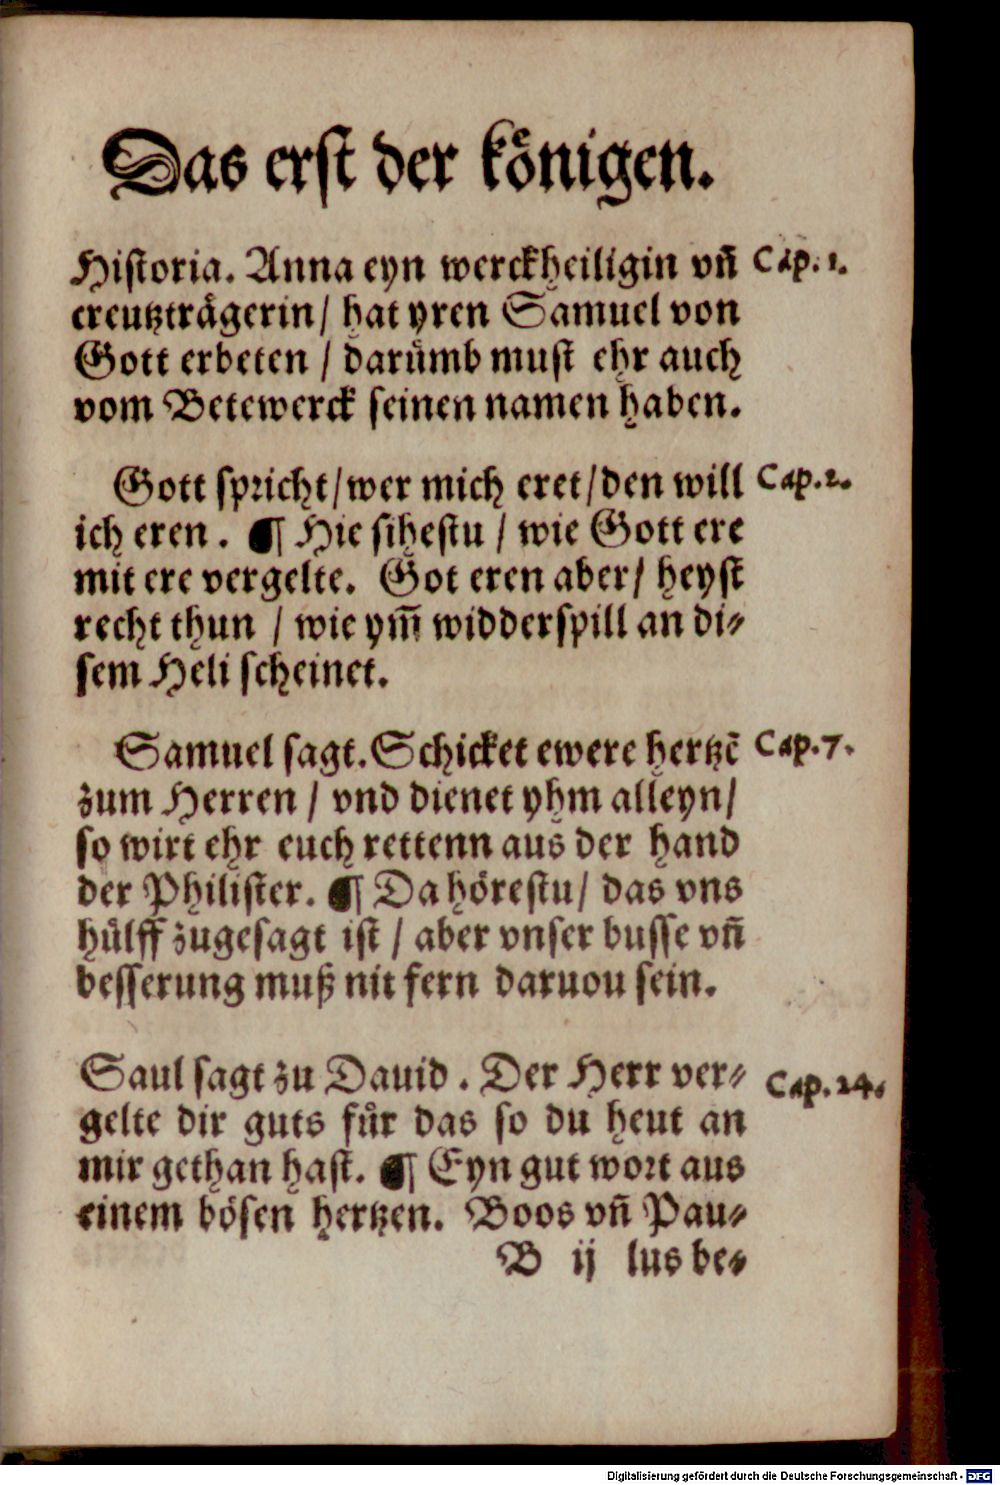 Das erst der koͤnigen.
Historia. Anna eyn werckheiligin vñ Cap. 1.
creutztraͤgerin/ hat yren Samuel von
Gott erbeten / daruͤmb must ehr auch
vom Betewerck seinen namen haben.
Gott spricht/wer mich eret/den will Cap.2.
ich eren . ¶ Hie sihestu / wie Gott ere
mit ere vergelte. Got eren aber/ heyst
recht thun / wie ym̃ widderspill an di⸗
sem Heli scheinet.
Samuel sagt. Schicket ewere hertzẽ Cap.7.
zum Herren / vnd dienet yhm alleyn/
so wirt ehr euch rettenn aus der hand
der Philister. ¶ Da hoͤrestu/ das vns
huͤlff zugesagt ist / aber vnser busse vñ
besserung muß nit fern daruou sein.
Saul sagt zu Dauid . Der Herr ver⸗ Cap.24.
gelte dir guts fuͤr das so du heut an
mir gethan hast. ¶ Eyn gut wort aus
einem boͤsen hertzen. Boos vñ Pau⸗
B ij lus be⸗
Digitalisierung gefördert durch die Deutsche Forschungsgemeinschaft - DFG